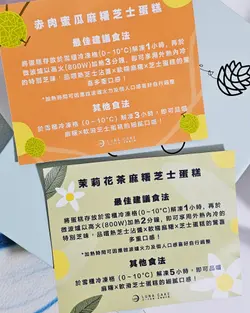 赤肉蜜瓜麻糬芝士蛋糕
最佳建議食法
將蛋糕存放於雪櫃冷凍格(0-10°C)解凍1小時，再於
微波爐以高火(800W)加熱3分鐘，即可享用外熱內冷的
特別芝味，品嚐熱芝士沾醬×軟糯麻糬×芝士蛋糕的豐
富多重口感！
其他食法
於雪櫃冷凍格(0-10°C)解凍3小時，即可品嚐
麻糬×軟滑芝士蛋糕的細膩口感！
LUNA CAKE
茉莉花茶麻糬芝士蛋糕
最佳建議食法
將蛋糕存放於雪櫃冷凍格(0-10°C)解凍1小時，再於
微波爐以高火(800W)加熱2分鐘，即可享用外熱內冷的
特別芝味，品嚐熱芝士沾醬×軟糯麻糬×芝士蛋糕的豐富
多重口感！
*加熱時間可因應微波爐火力及個人口感喜好自行調整
其他食法
於雪櫃冷凍格(0-10°C)解凍5小時，即可品嚐
麻糬×軟滑芝士蛋糕的細膩口感！
LUNA CAKE